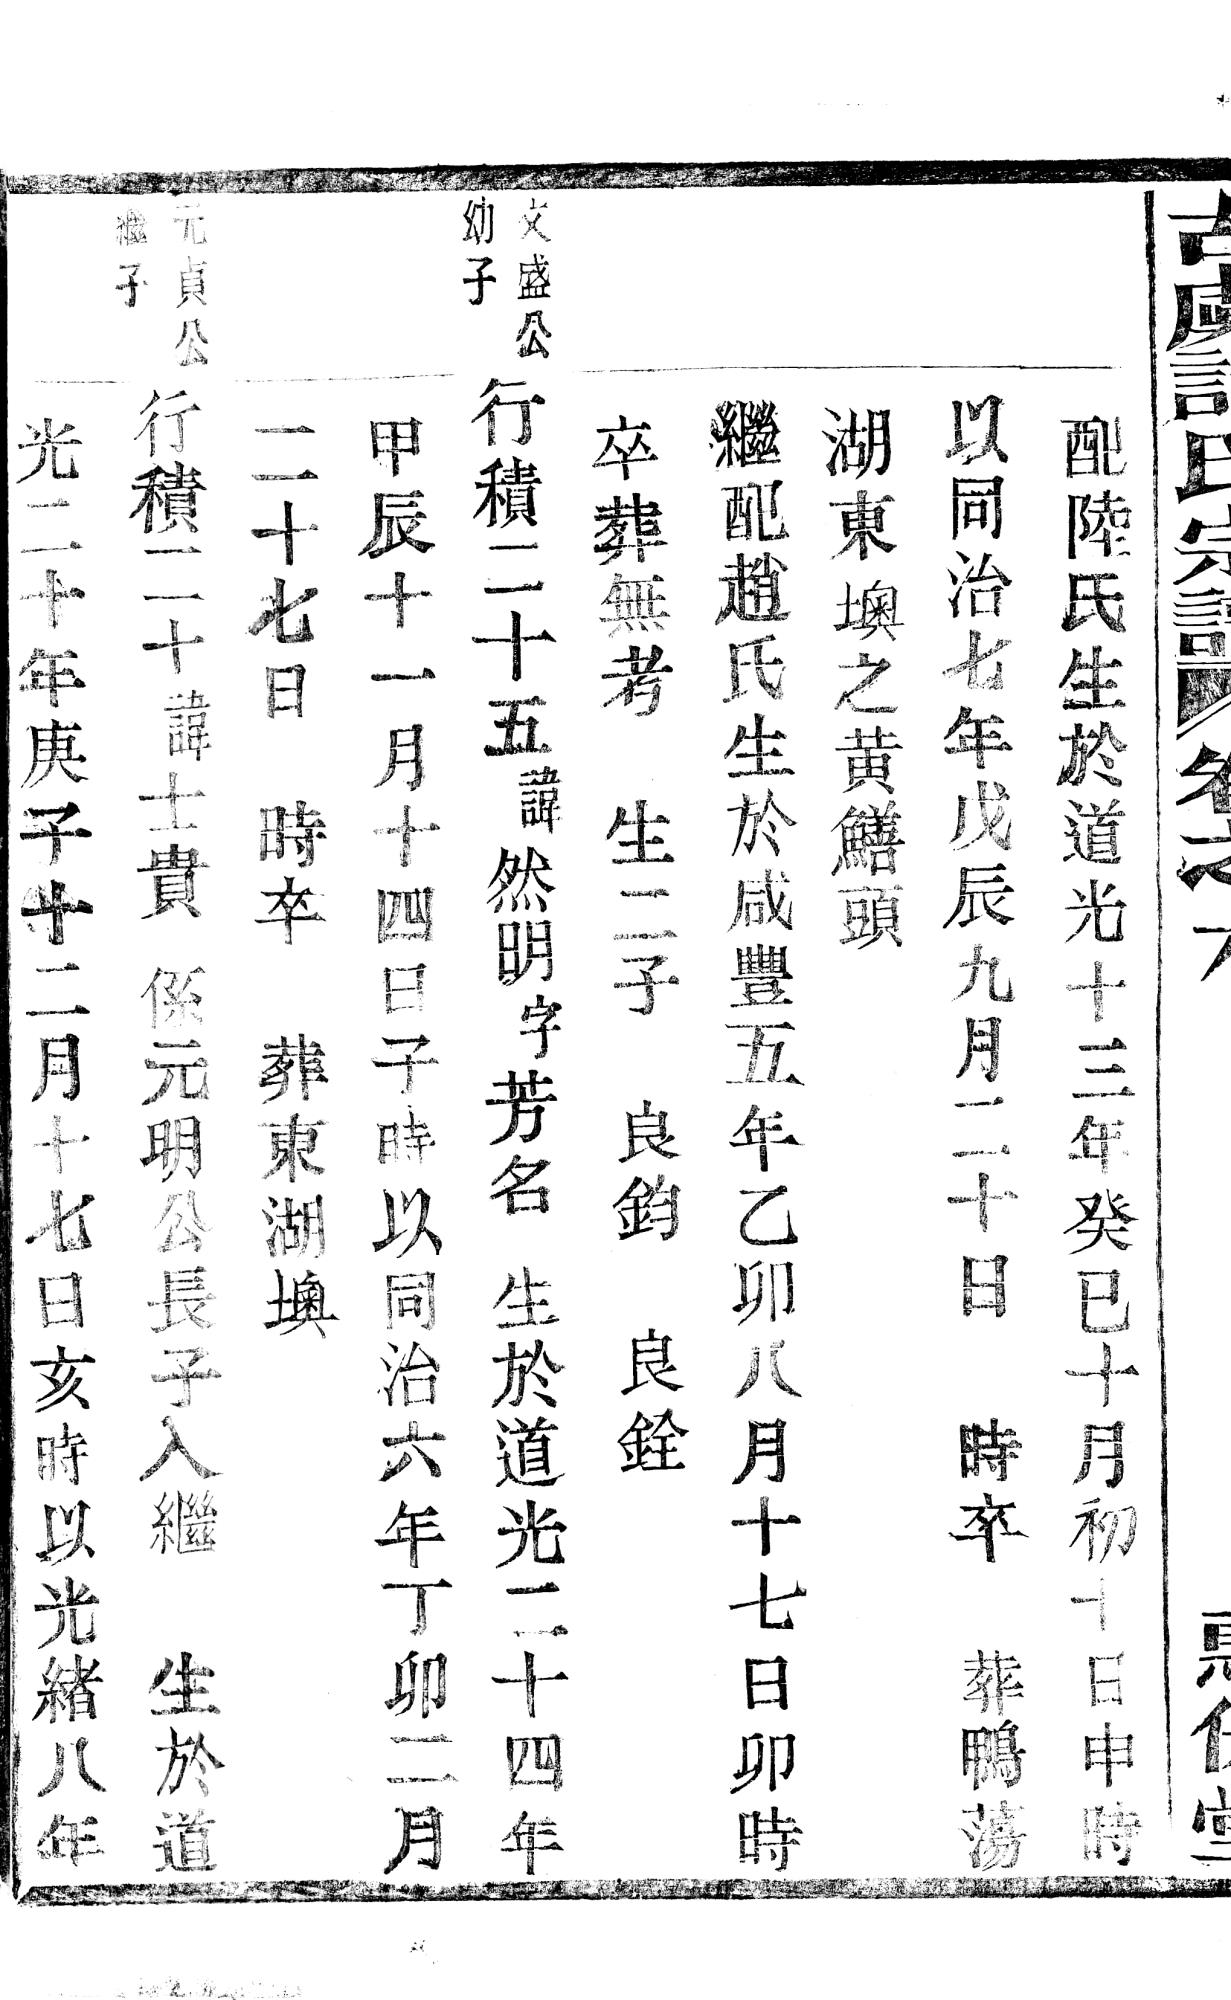 古虞許氏宗譜 卷之六
配陸氏生於道光十三年癸巳十月初十日申時
以同治七年戊辰九月二十日 時卒 葬鴨蕩
湖東墺之黃鱔頭
繼配趙氏生於咸豐五年乙卯八月十七日卯時
卒葬無考 生二子 良鈞 良銓
文盛公
幼子
行積二十五諱然明字芳名 生於道光二十四年
甲辰十一月十四日子時以同治六年丁卯二月
二十七日 時卒 葬東湖墺
元貞公
繼子
行積二十諱士貴 係元明公長子入繼 生於道
光二十年庚子十二月十七日亥時以光緒八年